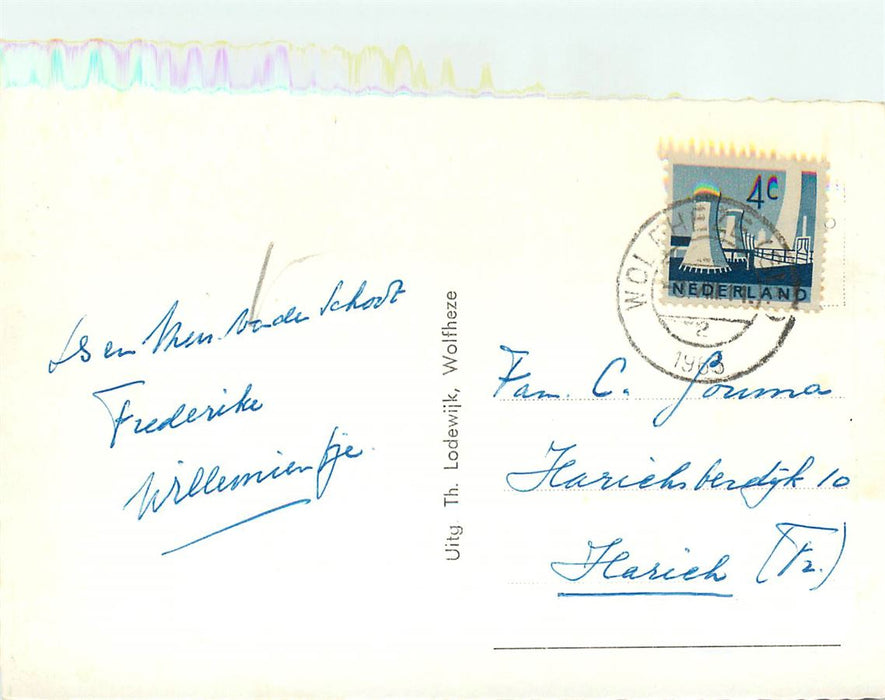 en van der Schoot
Frederike
Willemientje
Uitg. Th. Lodewijk, Wolfheze
4c
NEDERLAND
WOLFHEZE
1963
Fam. C. Jouma
Harichsterdijk 10
Harich (Fr.)